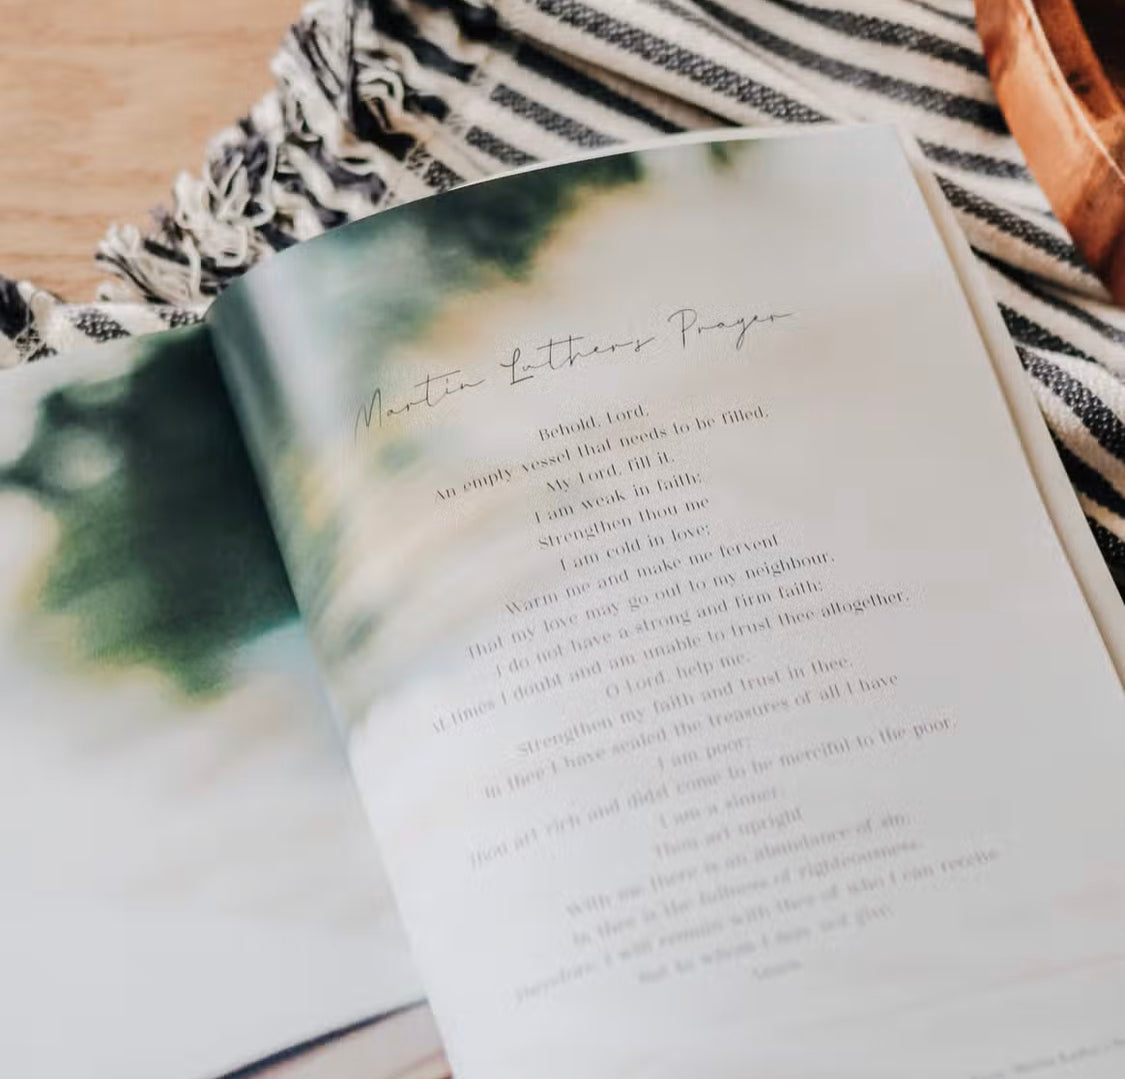 Martin Luthers Prayer
Behold, Lord,
An empty vessel that needs to be filled.
My Lord, fill it.
I am weak in faith;
Strengthen thou me
I am cold in love;
Warm me and make me fervent
That my love may go out to my neighbour.
I do not have a strong and firm faith;
At times I doubt and am unable to trust thee altogether.
O Lord, help me.
Strengthen my faith and trust in thee.
In thee I have sealed the treasures of all I have
I am poor;
Thou art rich and didst come to be merciful to the poor.
I am a sinner;
Thou art upright
With me there is an abundance of sin.
In thee is the fullness of righteousness.
Therefore, I will remain with thee of who I can receive
But to whom I may not give.
Amen.